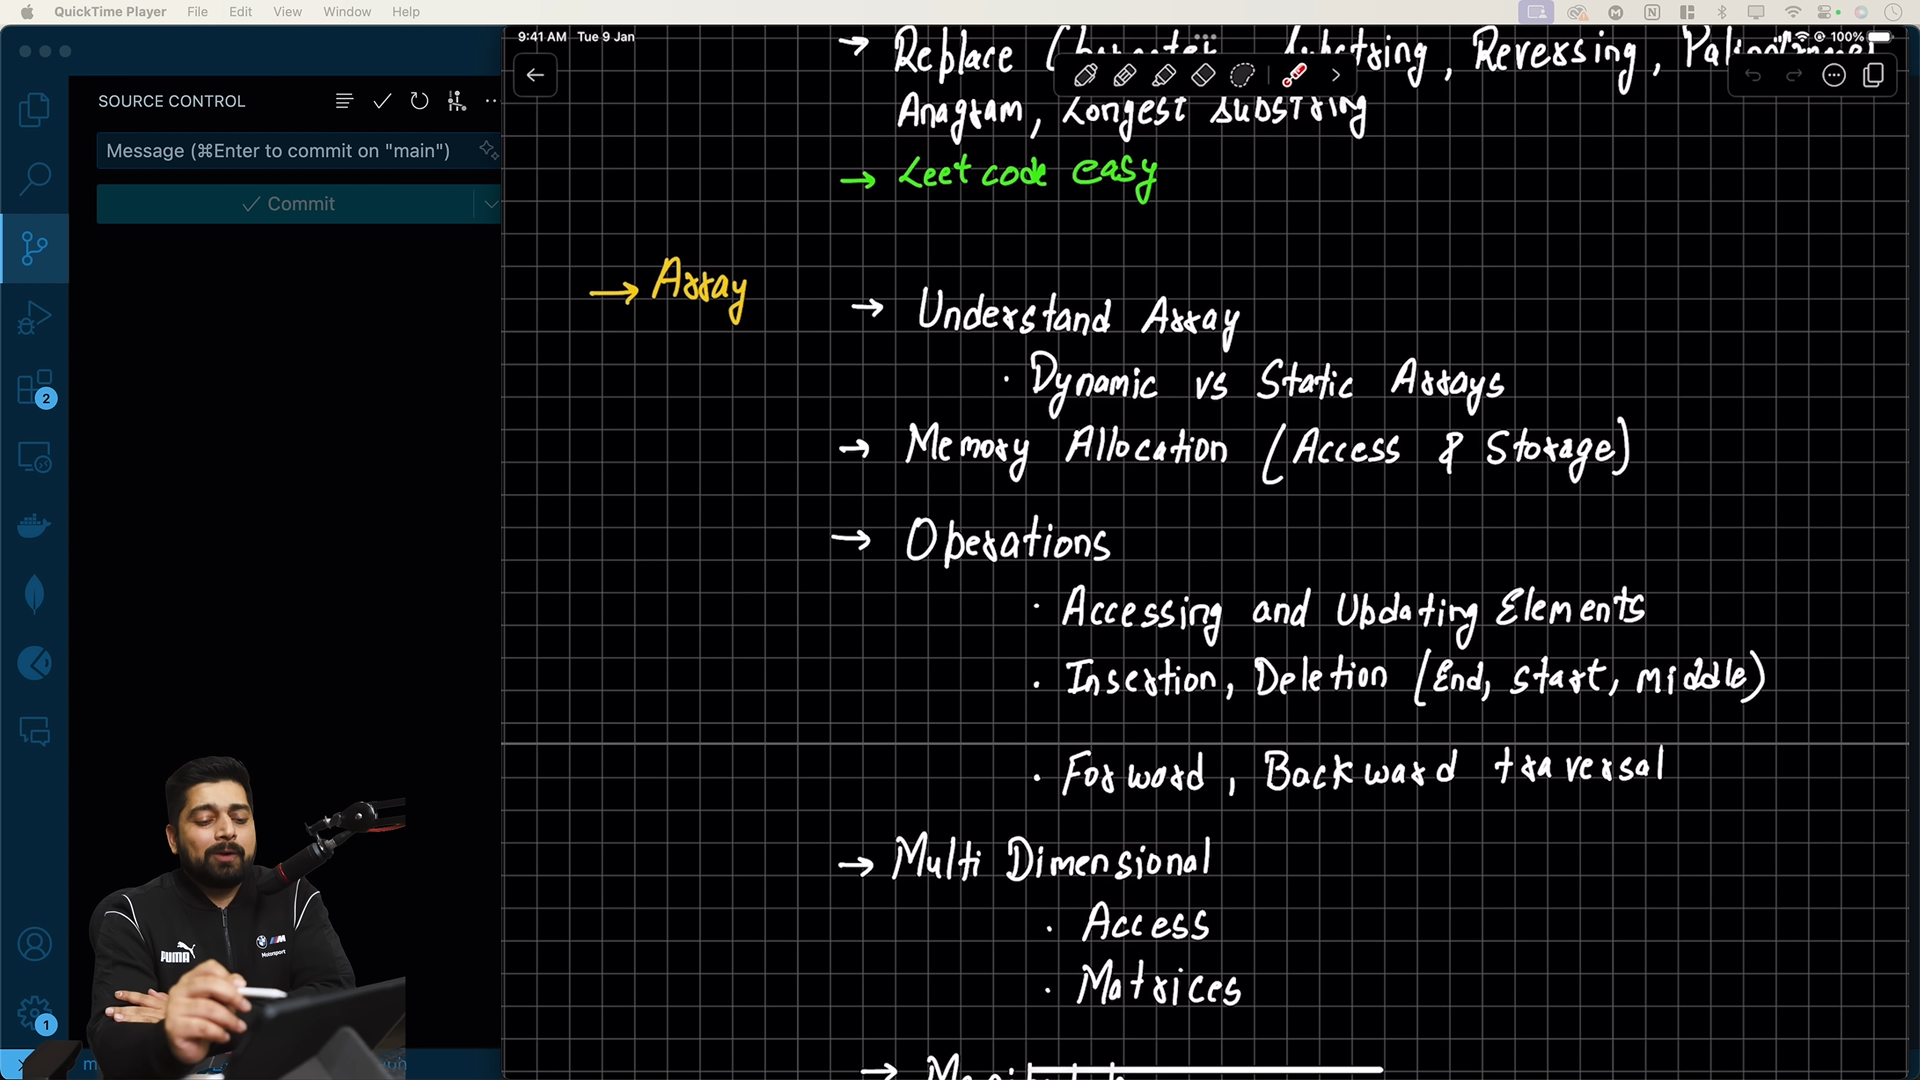 QuickTime Player File Edit View Window Help
9:41 AM Tue 9 Jan
100%
SOURCE CONTROL
Message (⌘Enter to commit on "main")
Commit
2
1
→ Replace Substring, Reversing,
Anagram, Longest substring
→ Leet code easy
→ Array
→ Understand Array
· Dynamic vs Static Arrays
→ Memory Allocation (Access & Storage)
→ Operations
· Accessing and Updating Elements
· Insertion, Deletion (End, start, middle)
· Forward, Backward traversal
→ Multi Dimensional
· Access
· Matrices
PUMA
M
Motorsport